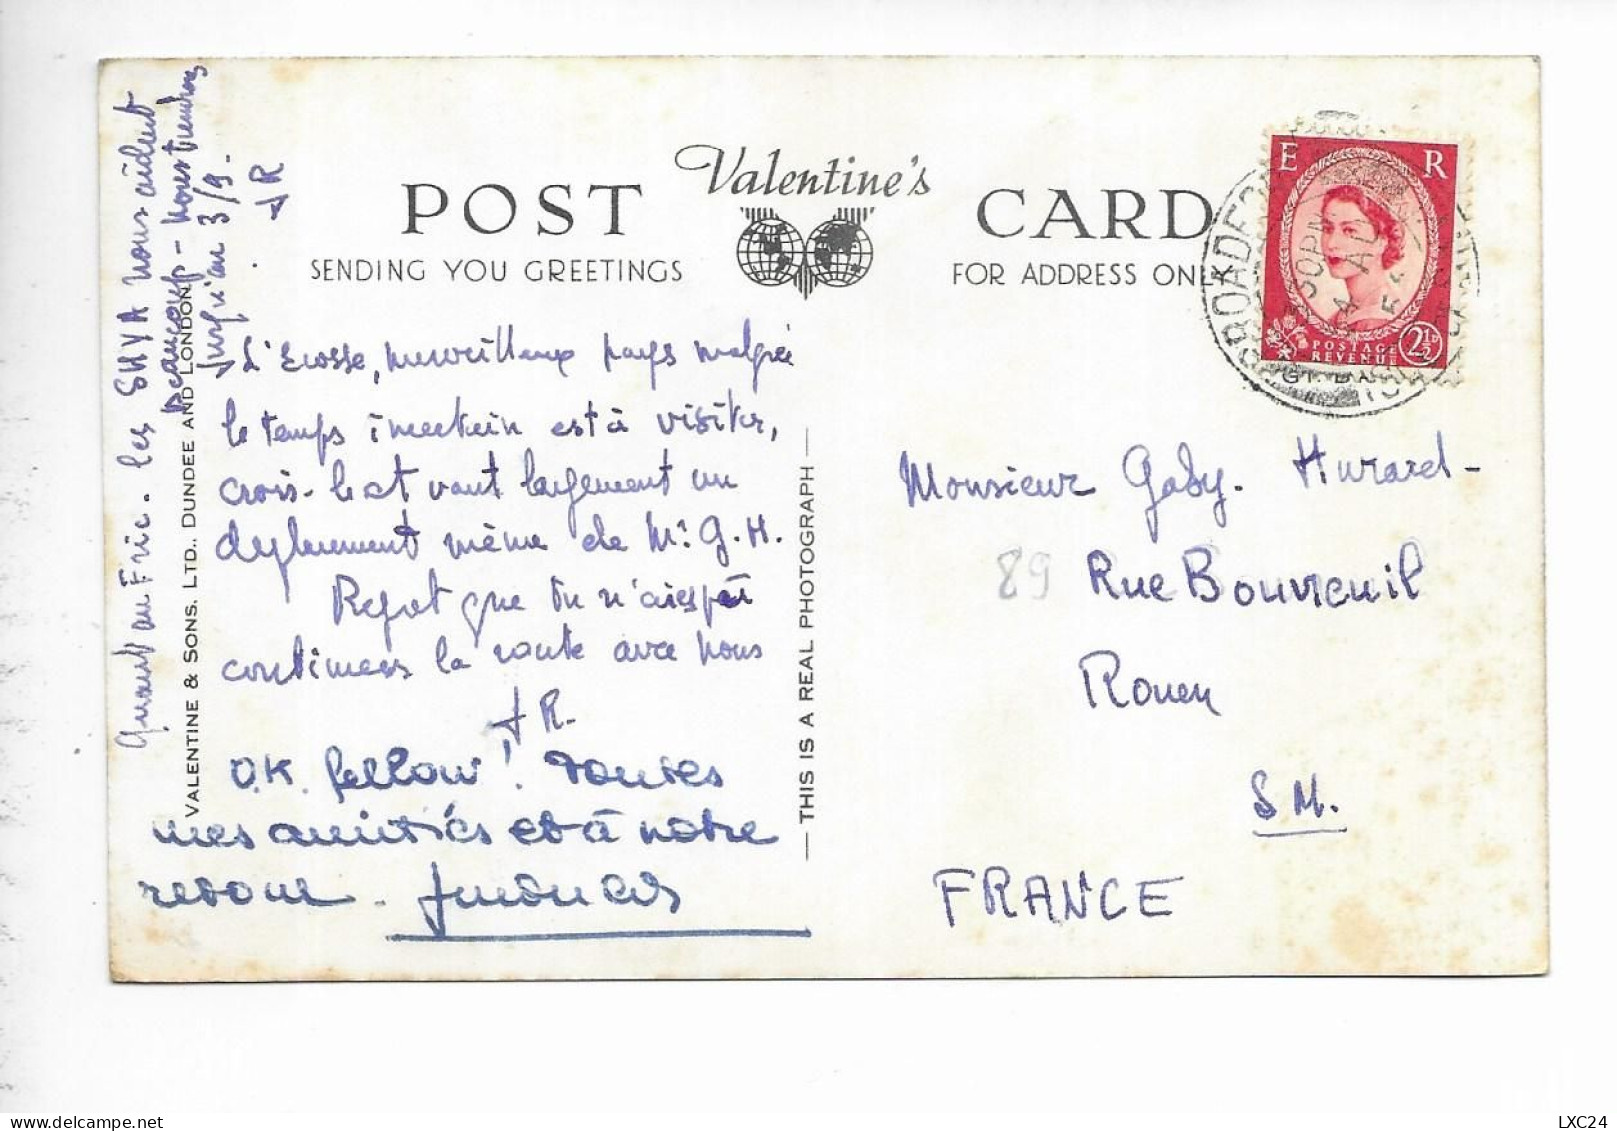 POST Valentine's CARD
SENDING YOU GREETINGS FOR ADDRESS ONLY
E R
POSTAGE
REVENUE
2½D
BROADFORD
L'Ecosse, merveilleux pays malgré
le temps incertain est à visiter,
crois-le et vaut largement un
deplacement même de Mr. G.H.
Regret que tu n'aies pas
continues la route avec nous
JR.
O.K. fellow! Toutes
mes amitiés et à notre
retour.
Quant au Fric. les nous aident
beaucoup - nous tiendrons
jusqu'au 3/9.
JR
VALENTINE & SONS, LTD., DUNDEE AND LONDON
THIS IS A REAL PHOTOGRAPH
Monsieur Gaby. Hurard-
89 Rue Bouvreuil
Rouen
S M.
FRANCE
LXC24